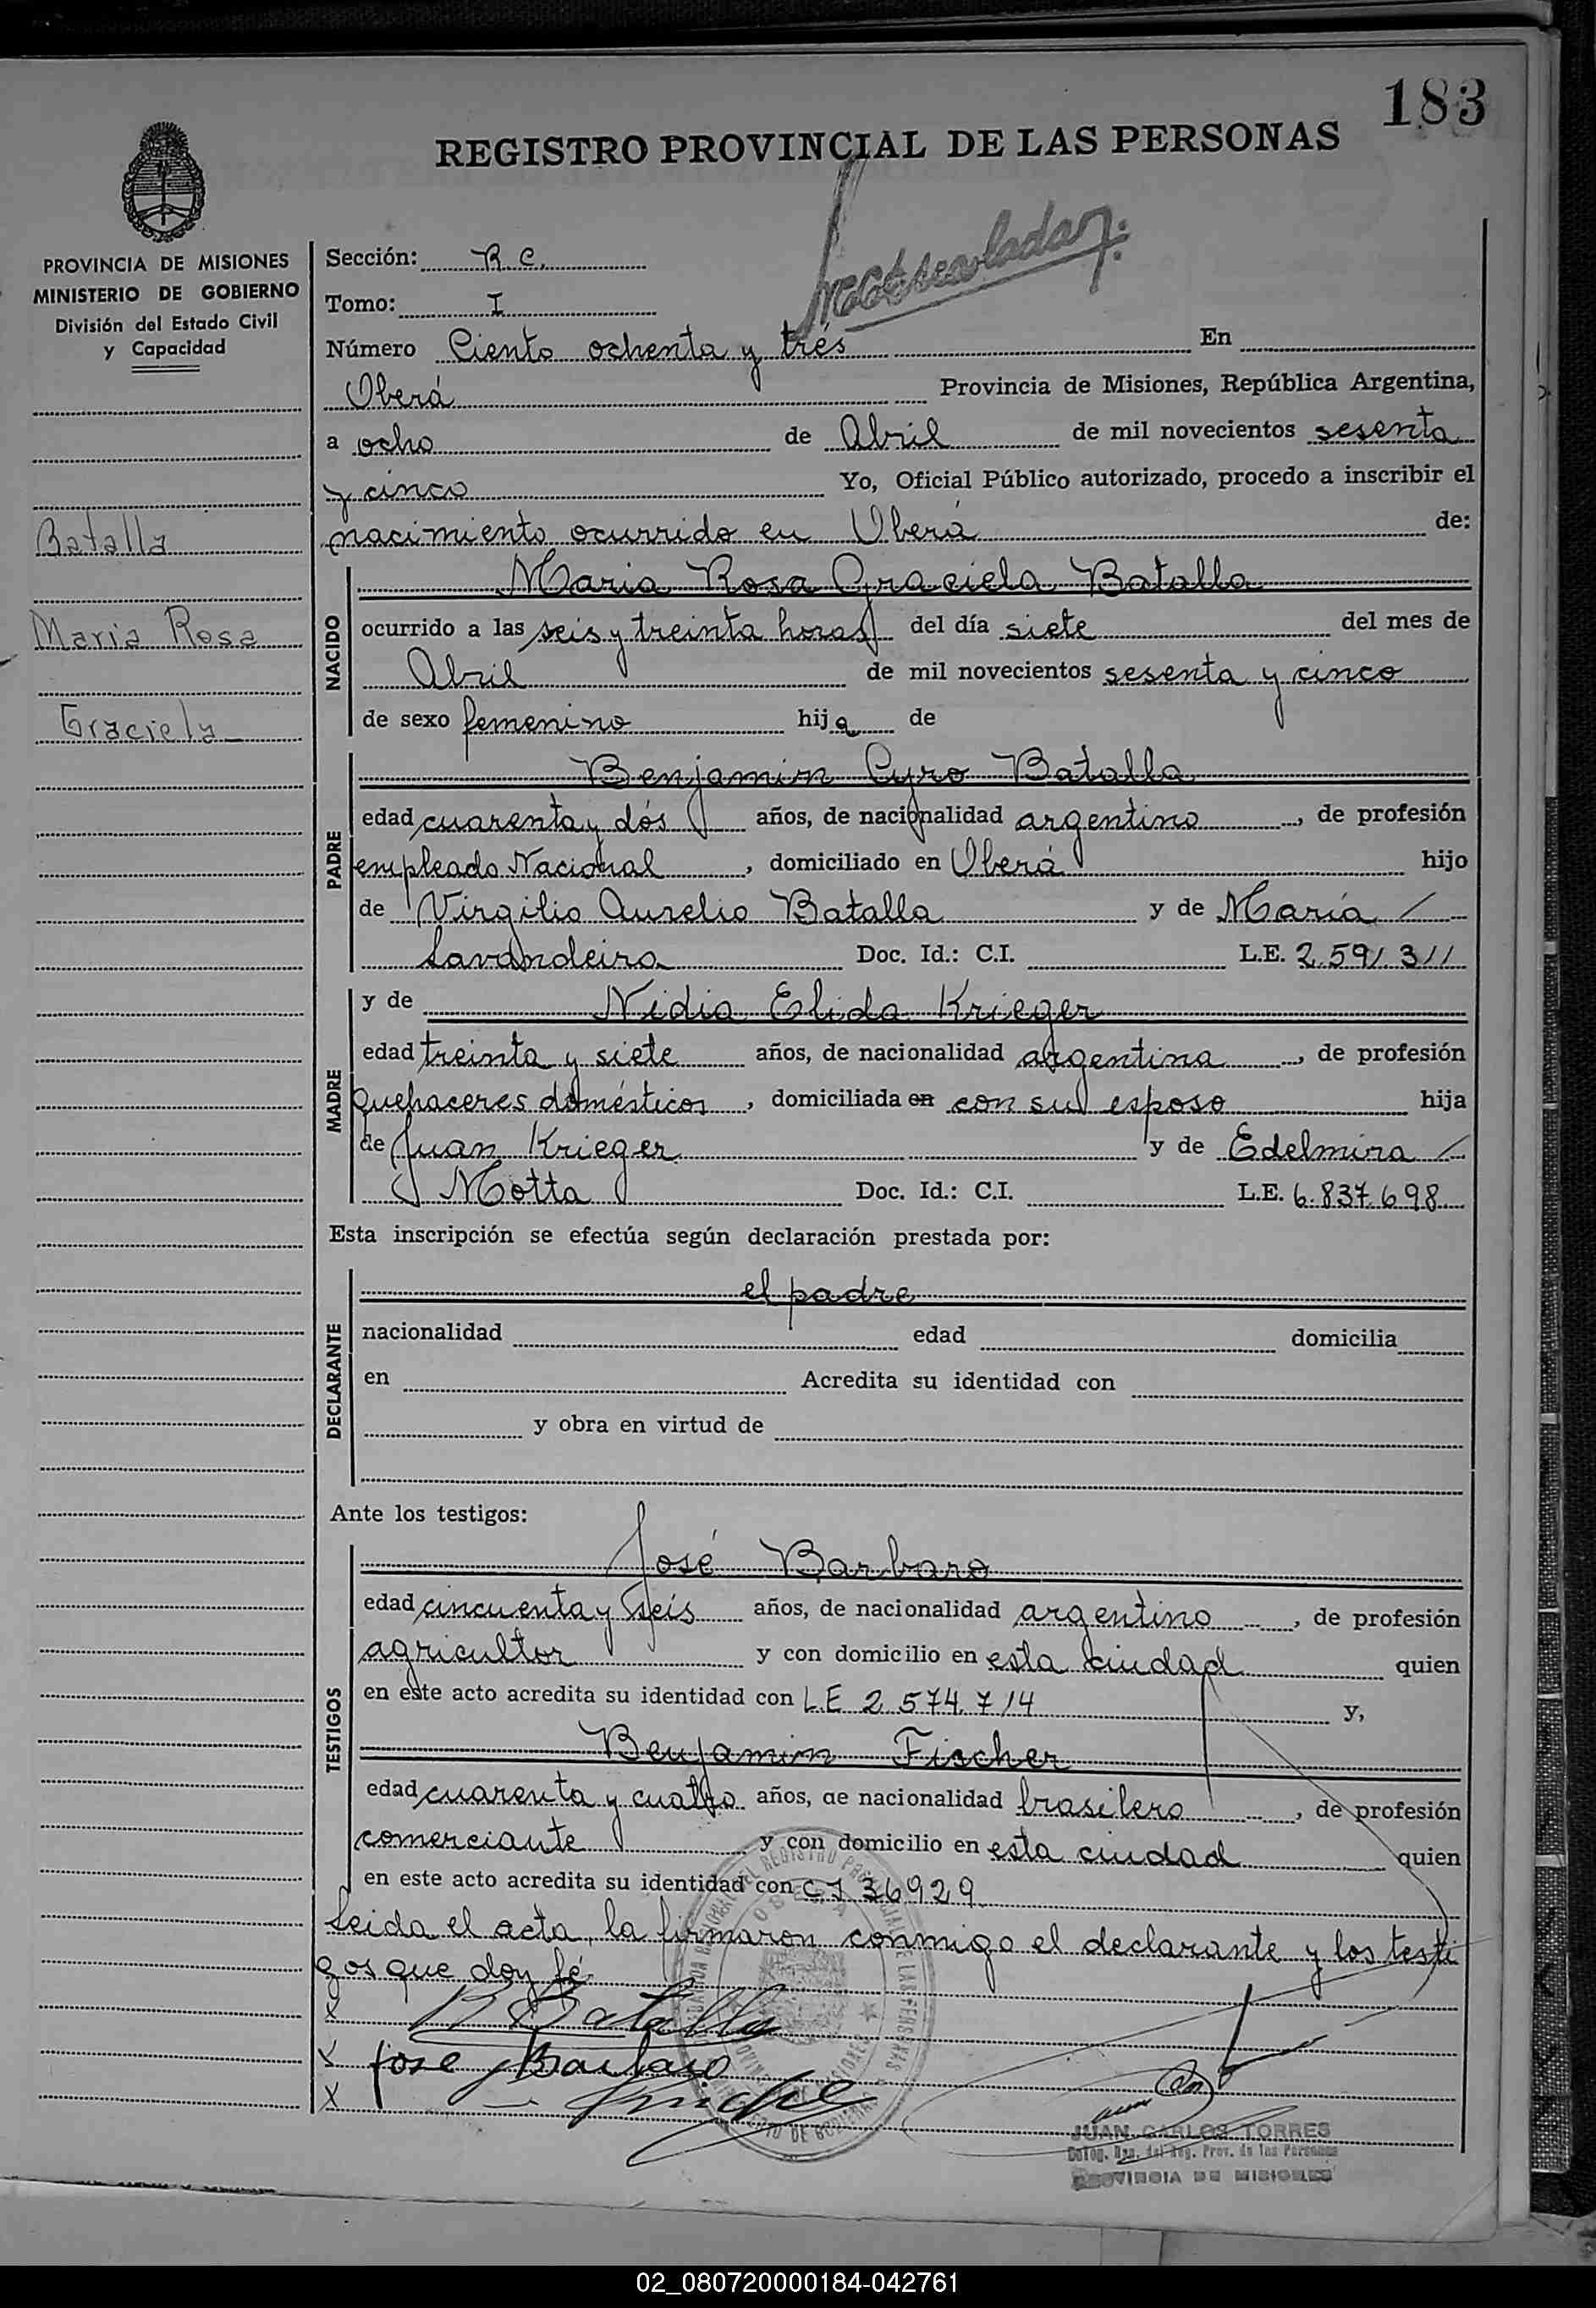 183
REGISTRO PROVINCIAL DE LAS PERSONAS
PROVINCIA DE MISIONES
MINISTERIO DE GOBIERNO
División del Estado Civil
y Capacidad
Batalla
Maria Rosa
Graciela
Sección: R. C.
Tomo: I
Número Ciento ochenta y trés En
Oberá Provincia de Misiones, República Argentina,
a ocho de Abril de mil novecientos sesenta
y cinco Yo, Oficial Público autorizado, procedo a inscribir el
nacimiento ocurrido en Oberá de:
NACIDO
Maria Rosa Graciela Batalla
ocurrido a las seis y treinta horas del día siete del mes de
Abril de mil novecientos sesenta y cinco
de sexo femenino hija de
PADRE
Benjamin Cyro Batalla
edad cuarenta y dós años, de nacionalidad argentino, de profesión
empleado Nacional, domiciliado en Oberá hijo
de Virgilio Aurelio Batalla y de María /
Lavandeira Doc. Id.: C.I. L.E. 2.591.311
MADRE
y de Nidia Elida Krieger
edad treinta y siete años, de nacionalidad argentina, de profesión
quehaceres domésticos, domiciliada en con su esposo hija
de Juan Krieger y de Edelmira /
Motta Doc. Id.: C.I. L.E. 6.837.698
Esta inscripción se efectúa según declaración prestada por:
DECLARANTE
el padre
nacionalidad edad domicilia
en Acredita su identidad con
y obra en virtud de
Ante los testigos:
TESTIGOS
José Barbaro
edad cincuenta y seis años, de nacionalidad argentino, de profesión
agricultor y con domicilio en esta ciudad quien
en este acto acredita su identidad con L.E 2.574.714 y,
Benjamin Fischer
edad cuarenta y cuatro años, de nacionalidad brasilero, de profesión
comerciante y con domicilio en esta ciudad quien
en este acto acredita su identidad con C I 36929
Leida el acta, la firmaron conmigo el declarante y los testi
gos que doy fé
X B Batalla
X Jose Barbaro
X
JUAN CARLOS TORRES
Reg. Prov. de las Personas
PROVINCIA DE MISIONES
02_080720000184-042761